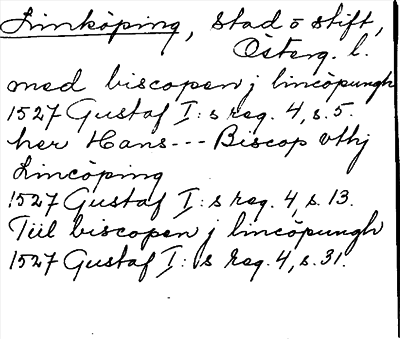 Linköping, stad o stift,
Österg. l.
med biscopen j lincöpungh
1527 Gustaf I:s reg. 4, s. 5.
her Hans --- Biscop vthj
Lincöping
1527 Gustaf I:s reg. 4, s. 13.
Tiil biscopen j lincöpungh
1527 Gustaf I:s reg. 4, s. 31.